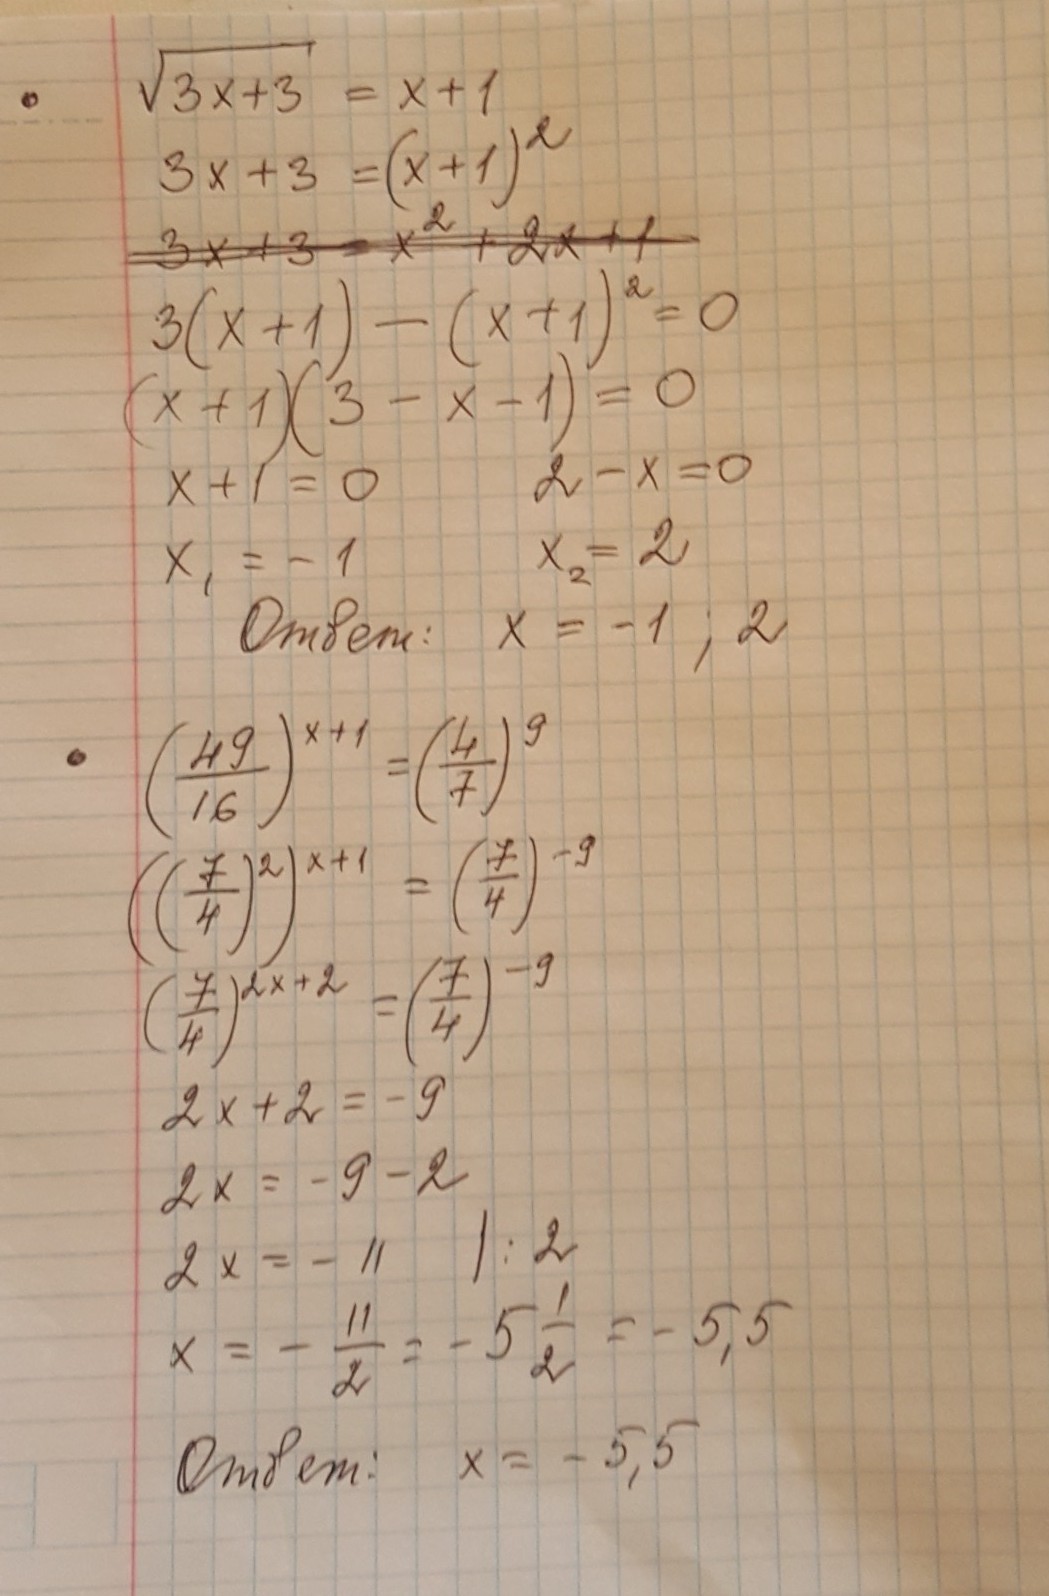 • √(3x+3) = x+1
3x+3 = (x+1)²
3x+3 = x² + 2x+1
3(x+1) − (x+1)² = 0
(x+1)(3 − x − 1) = 0
x+1 = 0 2 − x = 0
x₁ = −1 x₂ = 2
Ответ: x = −1 ; 2
• (49/16)^(x+1) = (4/7)^9
((7/4)²)^(x+1) = (7/4)^(−9)
(7/4)^(2x+2) = (7/4)^(−9)
2x+2 = −9
2x = −9 − 2
2x = −11 | : 2
x = − 11/2 = −5 1/2 = −5,5
Ответ: x = −5,5